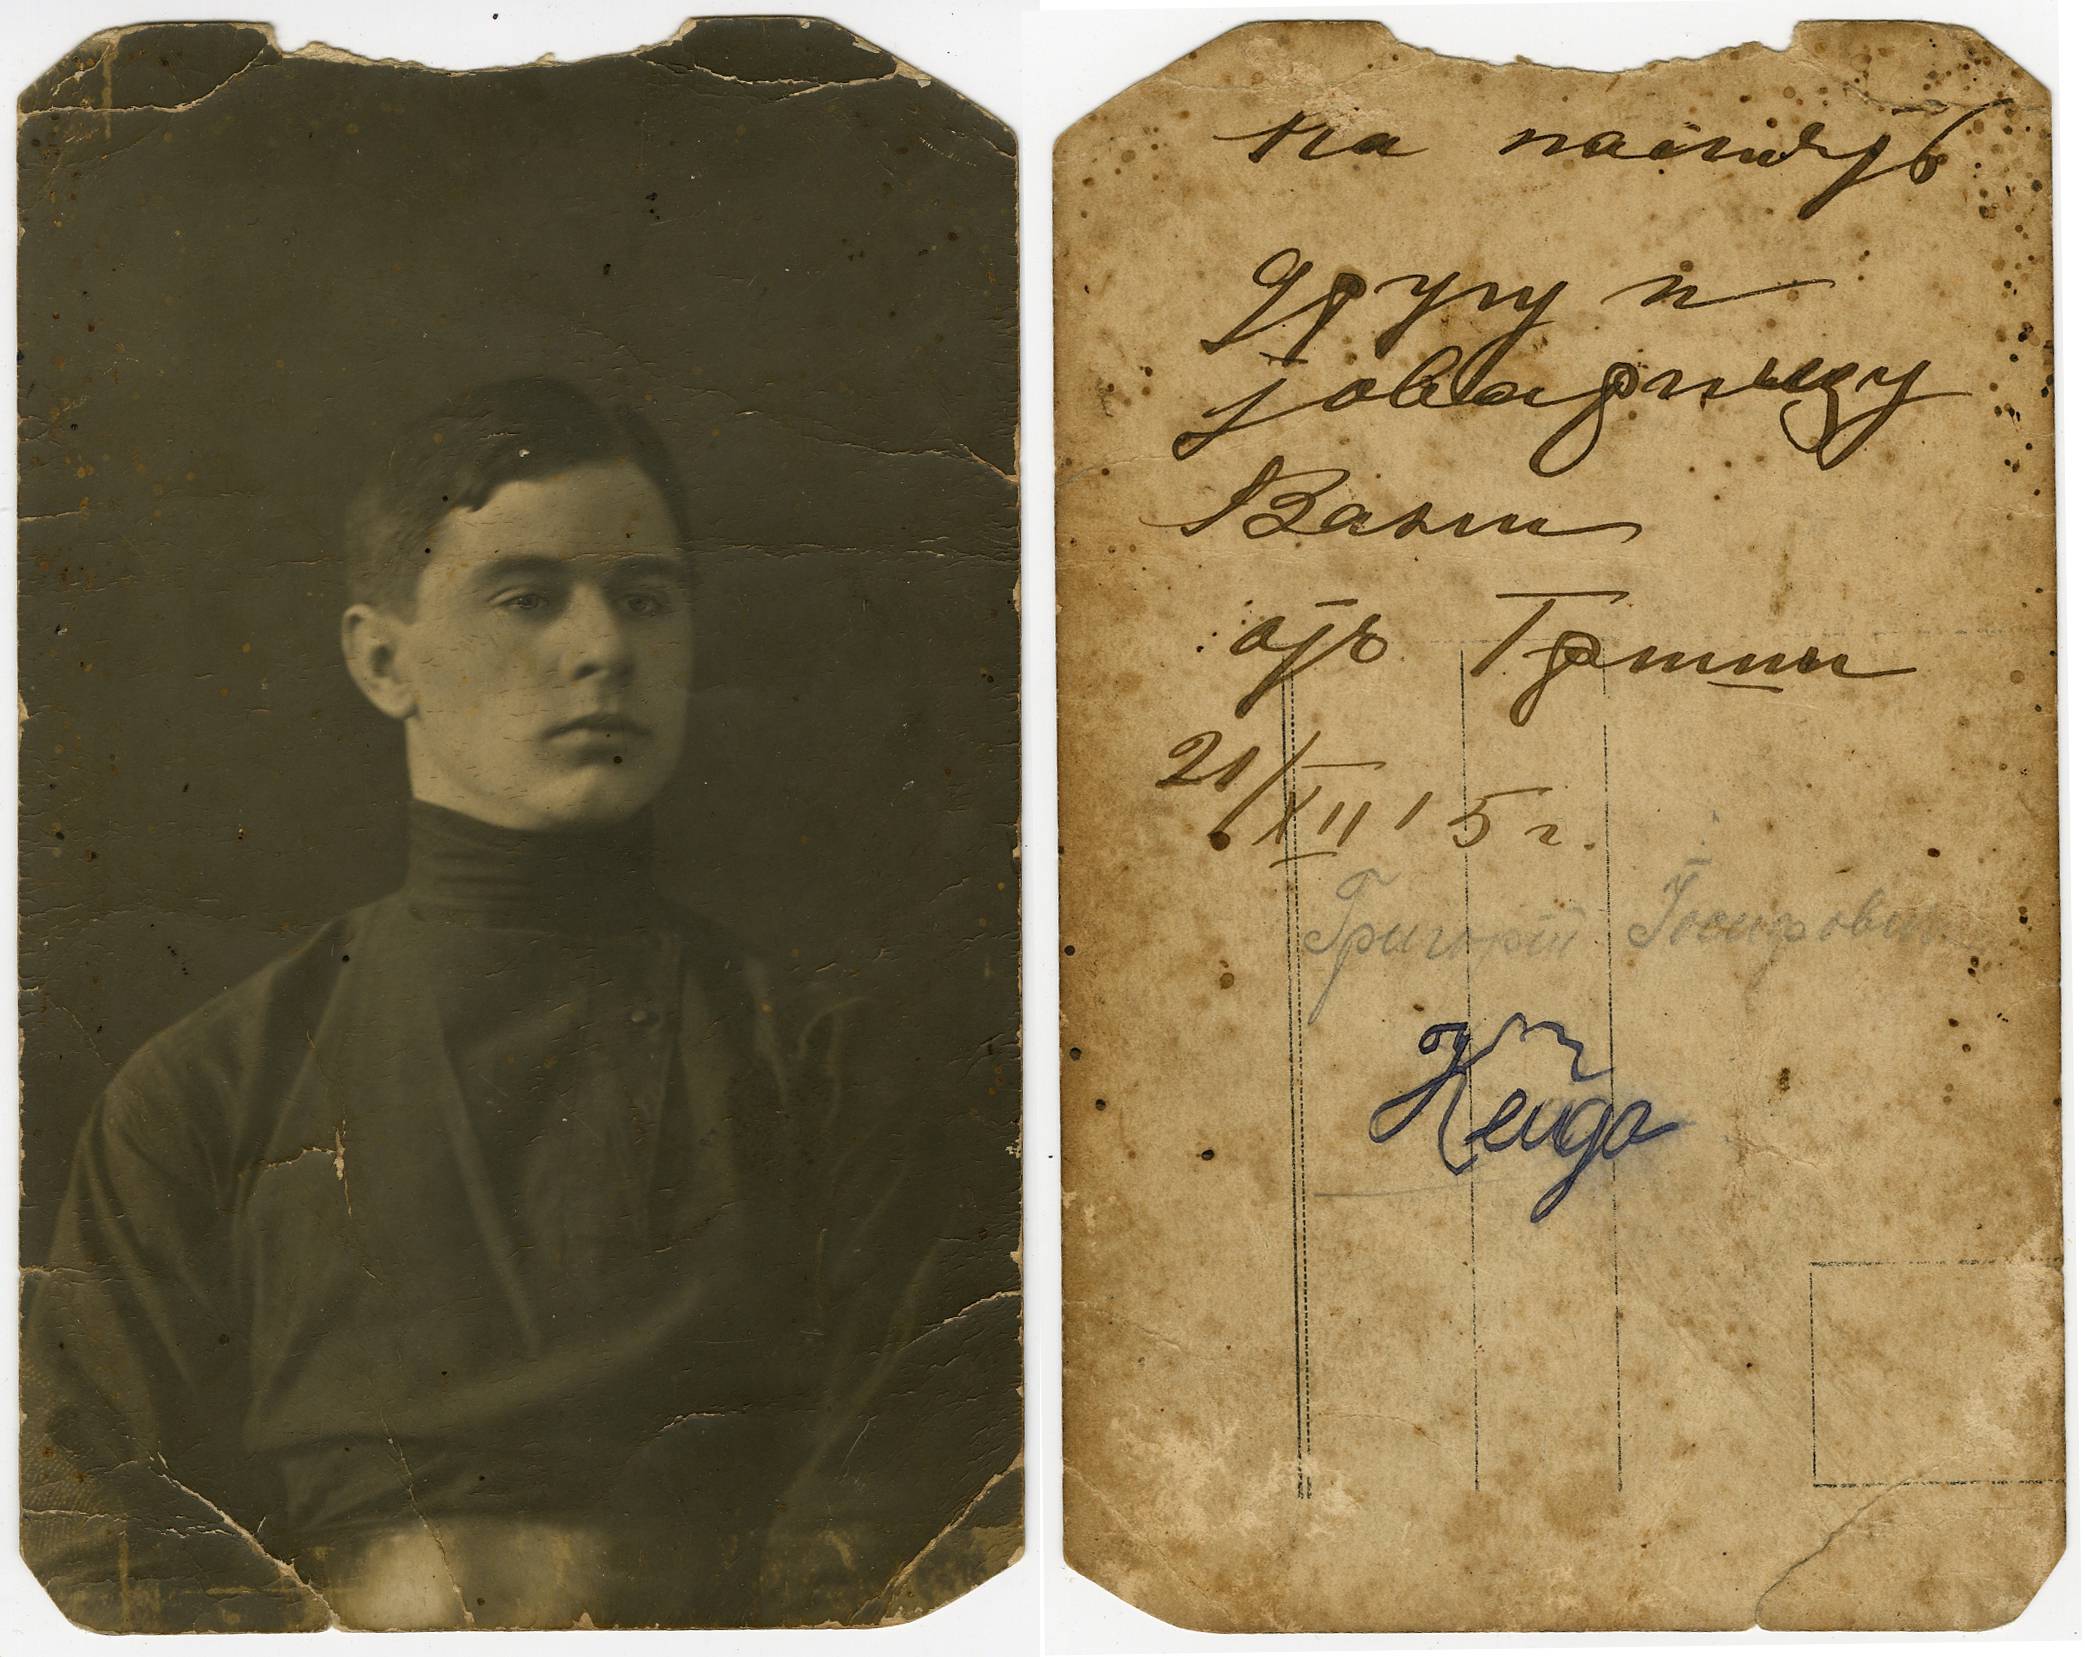 На память
другу и
товарищу
Вани
отъ Гриши
21/XII 15 г.
Григорій Іосифович
Кейдо